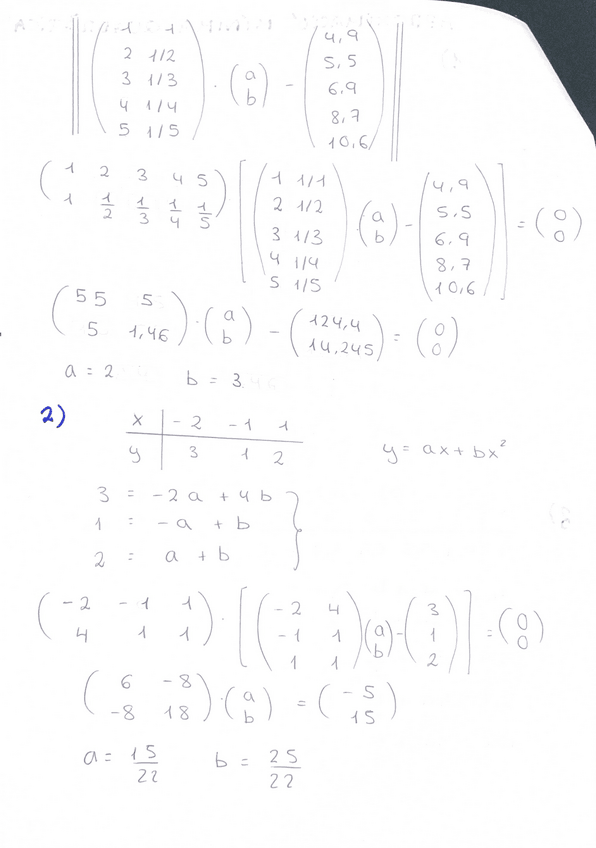 ‖ ( 1 1 ; 2 1/2 ; 3 1/3 ; 4 1/4 ; 5 1/5 ) · ( a ; b ) - ( 4,9 ; 5,5 ; 6,9 ; 8,7 ; 10,6 ) ‖
( 1 2 3 4 5 ; 1 1/2 1/3 1/4 1/5 ) · [ ( 1 1/1 ; 2 1/2 ; 3 1/3 ; 4 1/4 ; 5 1/5 ) · ( a ; b ) - ( 4,9 ; 5,5 ; 6,9 ; 8,7 ; 10,6 ) ] = ( 0 ; 0 )
( 55 5 ; 5 1,46 ) · ( a ; b ) - ( 124,4 ; 14,245 ) = ( 0 ; 0 )
a = 2 b = 3
2)
x | -2 -1 1
y | 3 1 2
y = ax + bx²
3 = -2a + 4b
1 = -a + b
2 = a + b
( -2 -1 1 ; 4 1 1 ) · [ ( -2 4 ; -1 1 ; 1 1 ) ( a ; b ) - ( 3 ; 1 ; 2 ) ] = ( 0 ; 0 )
( 6 -8 ; -8 18 ) · ( a ; b ) = ( -5 ; 15 )
a = 15/22 b = 25/22